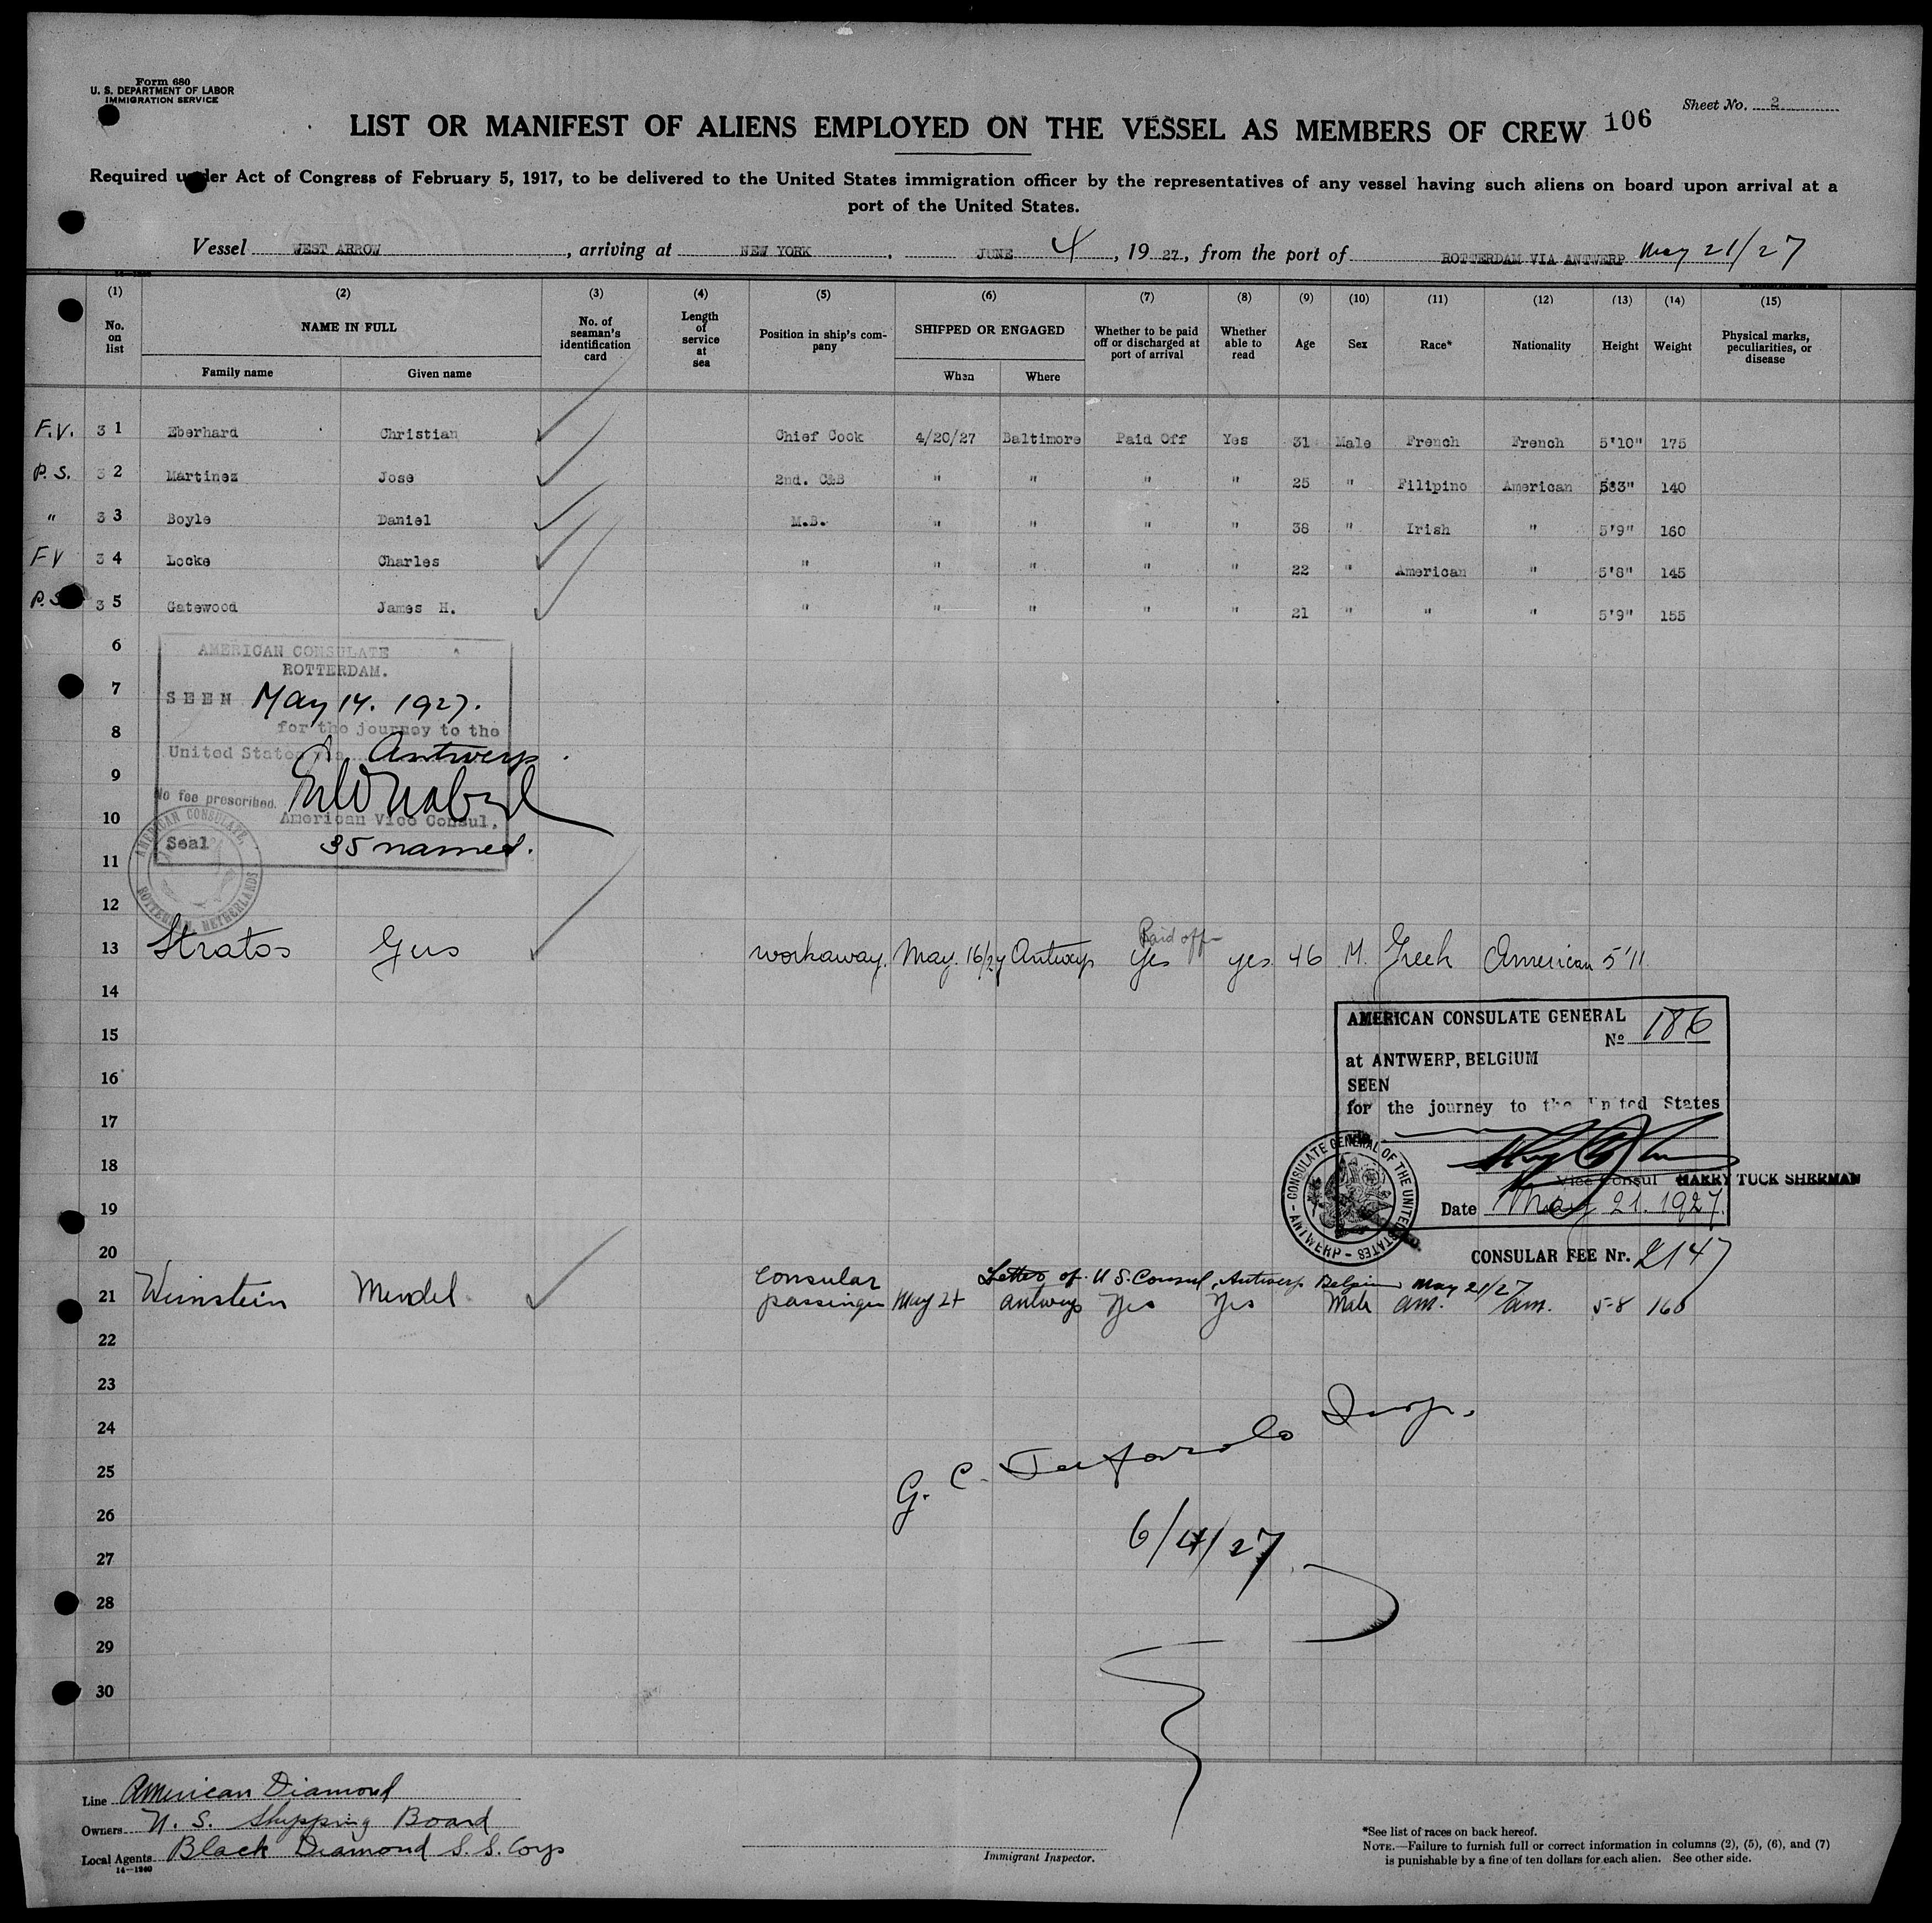 Form 680
U. S. DEPARTMENT OF LABOR
IMMIGRATION SERVICE
Sheet No. 2
LIST OR MANIFEST OF ALIENS EMPLOYED ON THE VESSEL AS MEMBERS OF CREW 106
Required under Act of Congress of February 5, 1917, to be delivered to the United States immigration officer by the representatives of any vessel having such aliens on board upon arrival at a
port of the United States.
Vessel WEST ARROW, arriving at NEW YORK, JUNE 4, 19 27, from the port of ROTTERDAM VIA ANTWERP May 21/27
(1) (2) (3) (4) (5) (6) (7) (8) (9) (10) (11) (12) (13) (14) (15)
No. on list
NAME IN FULL
Family name Given name
No. of seaman's identification card
Length of service at sea
Position in ship's company
SHIPPED OR ENGAGED
When Where
Whether to be paid off or discharged at port of arrival
Whether able to read
Age
Sex
Race*
Nationality
Height
Weight
Physical marks, peculiarities, or disease
F.V. 3 1 Eberhard Christian Chief Cook 4/20/27 Baltimore Paid Off Yes 31 Male French French 5'10" 175
P.S. 3 2 Martinez Jose 2nd. C&B " " " " 25 " Filipino American 5'3" 140
" 3 3 Boyle Daniel M.B. " " " " 38 " Irish " 5'9" 160
FV 3 4 Locke Charles " " " " " 22 " American " 5'8" 145
P.S. 3 5 Gatewood James H. " " " " " 21 " " " 5'9" 155
6
AMERICAN CONSULATE
ROTTERDAM.
7
SEEN May 14. 1927.
8
for the journey to the
United States via Antwerp.
9
No fee prescribed.
10
American Vice Consul,
Seal 35 names.
AMERICAN CONSULATE, ROTTERDAM, NETHERLANDS
11
12
13 Stratos Gus workaway. May. 16/27 Antwerp Paid off Yes yes. 46 M. Greek American 5'11
14
AMERICAN CONSULATE GENERAL
No 186
15
at ANTWERP, BELGIUM
16
SEEN
for the journey to the United States
17
18
CONSULATE GENERAL OF THE UNITED STATES - ANTWERP -
Vice Consul HARRY TUCK SHERMAN
19
Date May 21. 1927.
20
CONSULAR FEE Nr. 2147
Letter of U S. Consul, Antwerp Belgium May 21/27
21 Weinstein Mendel consular passenger May 21 Antwerp Yes Yes Male am. am. 5-8 160
22
23
24
G. C. Insp.
25
26
6/4/27
27
28
29
30
Line American Diamond
Owners U. S. Shipping Board
Local Agents Black Diamond S. S. Corp
14—1240
Immigrant Inspector.
*See list of races on back hereof.
NOTE.—Failure to furnish full or correct information in columns (2), (5), (6), and (7)
is punishable by a fine of ten dollars for each alien. See other side.